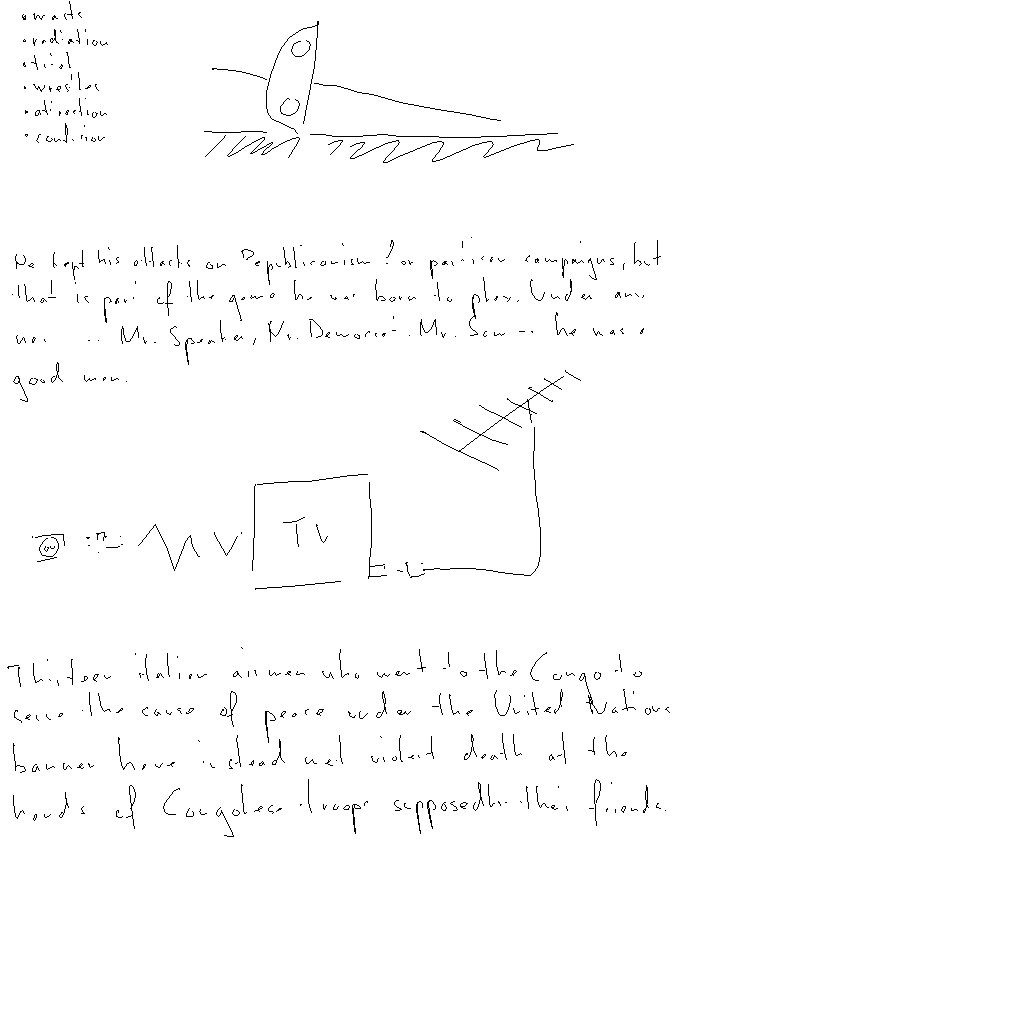 • waste
• radiation
• trial
• wrestles
• direction
• condition
He kept his attacks on Republicanism for partisan campaigns, but
that is part of the game he was born to play. Under any
name -- Mr. Speaker, Mr. Democrat, Mr. Sam -- he was a
good man.
TV
Thirteen italian airmen who went to the Congo to
serve the cause of peace under the United Nations
banner have instead met violent death at the
hands of Congolese troops supposedly their friends.